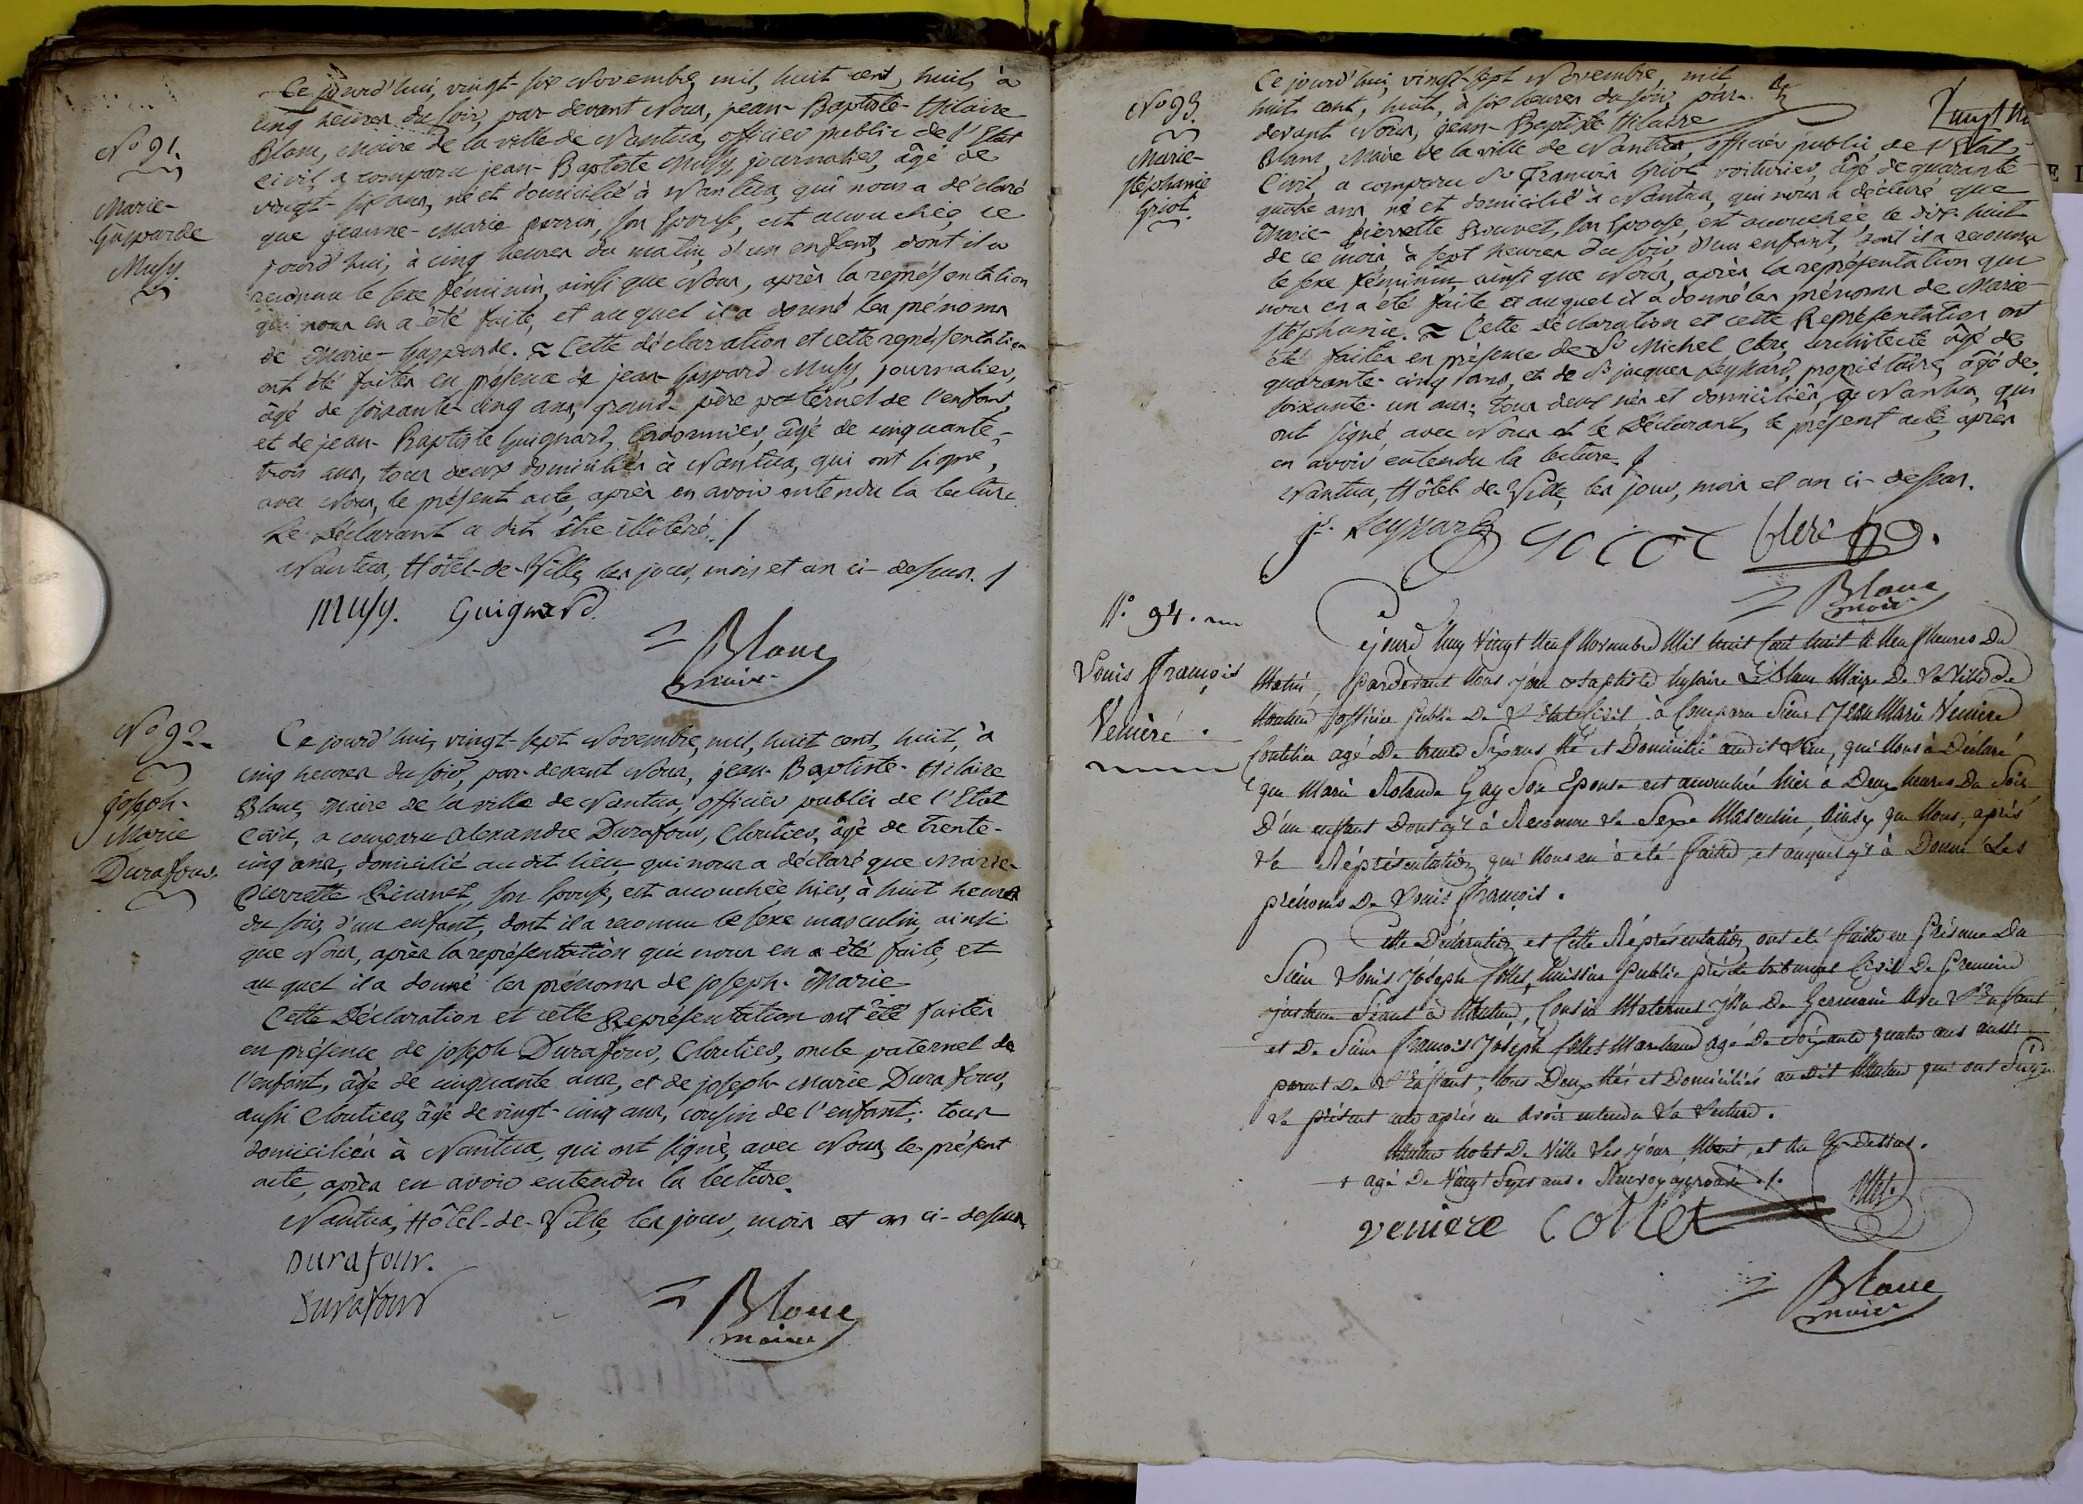 Ce jourd'hui, vingt-six Novembre, mil, huit cent, huit, à
cinq heures du soir, par-devant Nous, jean-Baptiste-Hilaire
Blanc, Maire de la ville de Nantua, officier public de l'Etat
civil, a comparu jean-Baptiste Musy journalier, âgé de
vingt-six ans, né et domicilié à Nantua, qui nous a déclaré
que jeanne-Marie perrin, son Epouse, est accouchée, ce
jourd'hui, à cinq heures du matin, d'un enfant, dont il a
reconnu le sexe féminin, ainsi que Nous, après la représentation
qui nous en a été faite, et auquel il a donné les prénoms
de Marie-Gasparde. Cette déclaration et cette représentation
ont été faites en présence de jean-Gaspard Musy, journalier,
âgé de soixante-cinq ans, grand-père paternel de l'enfant,
et de jean-Baptiste Guignard, Cordonnier, âgé de cinquante-
trois ans, tous deux domiciliés à Nantua, qui ont signé,
avec Nous, le présent acte, après en avoir entendu la lecture.
Le Déclarant a dit être illitéré.
Nantua, Hôtel-de-Ville, les jour, mois et an ci-dessus.
Musy. Guignard.
Blanc
maire
N° 91.
Marie-
Gasparde
Musy.
N° 92.
Joseph-
Marie
Durafour.
Ce jourd'hui, vingt-sept Novembre, mil, huit cent, huit, à
cinq heures du soir, par-devant Nous, jean-Baptiste-Hilaire
Blanc, Maire de la ville de Nantua, officier public de l'Etat
Civil, a comparu alexandre Durafour, Cloutier, âgé de trente-
cinq ans, domicilié audit lieu, qui nous a déclaré que Marie-
Pierrette son Epouse, est accouchée, hier, à huit heures
du soir, d'un enfant, dont il a reconnu le sexe masculin, ainsi
que Nous, après la représentation qui nous en a été faite, et
auquel il a donné les prénoms de Joseph-Marie
Cette Déclaration et cette Représentation ont été faites
en présence de joseph Durafour, Cloutier, oncle paternel de
l'enfant, âgé de cinquante ans, et de joseph-Marie Durafour,
aussi Cloutier, âgé de vingt-cinq ans, cousin de l'enfant; tous
domiciliés à Nantua, qui ont signé, avec Nous, le présent
acte, après en avoir entendu la lecture.
Nantua, Hôtel-de-Ville, les jour, mois et an ci-dessus
Durafour.
Durafour
Blanc
maire
N° 93.
Marie-
stéphanie
Griot.
Ce jourd'hui, vingt-sept Novembre, mil
huit cent, huit, à six heures du soir, par-
devant Nous, jean-Baptiste Hilaire
Blanc, Maire de la ville de Nantua, officier public de l'Etat-
Civil, a comparu Sr François Griot, voiturier, âgé de quarante-
quatre ans, né et domicilié à Nantua, qui nous a déclaré que
Marie-pierrette son Epouse, est accouchée, le dix-huit
de ce mois à sept heures du soir d'un enfant, dont il a reconnu
le sexe féminin, ainsi que Nous, après la représentation qui
nous en a été faite et auquel il a donné les prénoms de Marie-
Stéphanie. Cette Déclaration et cette Représentation ont
été faites en présence de Sr Michel Clerc, architecte âgé de
quarante-cinq ans, et de Sr jacques Leyssard, propriétaire, âgé de
soixante-un ans; tous deux nés et domiciliés, à Nantua, qui
ont signé, avec Nous et le Déclarant, le présent acte, après
en avoir entendu la lecture.
Nantua, Hôtel-de-Ville, les jour, mois et an ci-dessus.
Jes. Leyssard Griot Clerc
Blanc
maire
N° 94.
Louis François
Veniere.
Cejourd'huy Vingt Neuf Novembre Mil huit Cent huit à Neuf heures Du
Matin, Pardevant Nous jean Baptiste hylaire Blanc Maire De La Ville de
Nantua officier Public De L'Etat Civil à Comparu Sieur Jean Marie Veniere
agé De trente Six ans Né et Domicilié audit Lieu, qui Nous à Déclaré
que Marie Rolande Guy Son Epouse est accouchée hier à Deux heures Du Soir,
D'un enfant Dont y'l à Reconnu Le Sexe Masculin, Ainsy que Nous, après
La Réprésentation qui Nous en à été faite, et auquel y'l à Donné Les
prénoms De Louis François.
Cette Déclaration et Cette Réprésentation ont été faites en Présence Du
Sieur Louis Joseph Collet, huissier Public près le tribunal Civil De Première
jnstance Séant à Nantua, Cousin Maternel De L'Enfant
et De Sieur François Joseph Collet Marchand agé De Soixante quatre ans aussi
parent De L'Enfant; tous Deux Nés et Domiciliés audit Nantua qui ont Signé
Le Présent acte après en Avoir entendu La Lecture.
Nantua hotel De Ville Les jour, Mois, et An Cy-dessus.
+ agé De Vingt Sept ans. Renvoy approuvé.
Veniere Collet Collet.
Blanc
maire